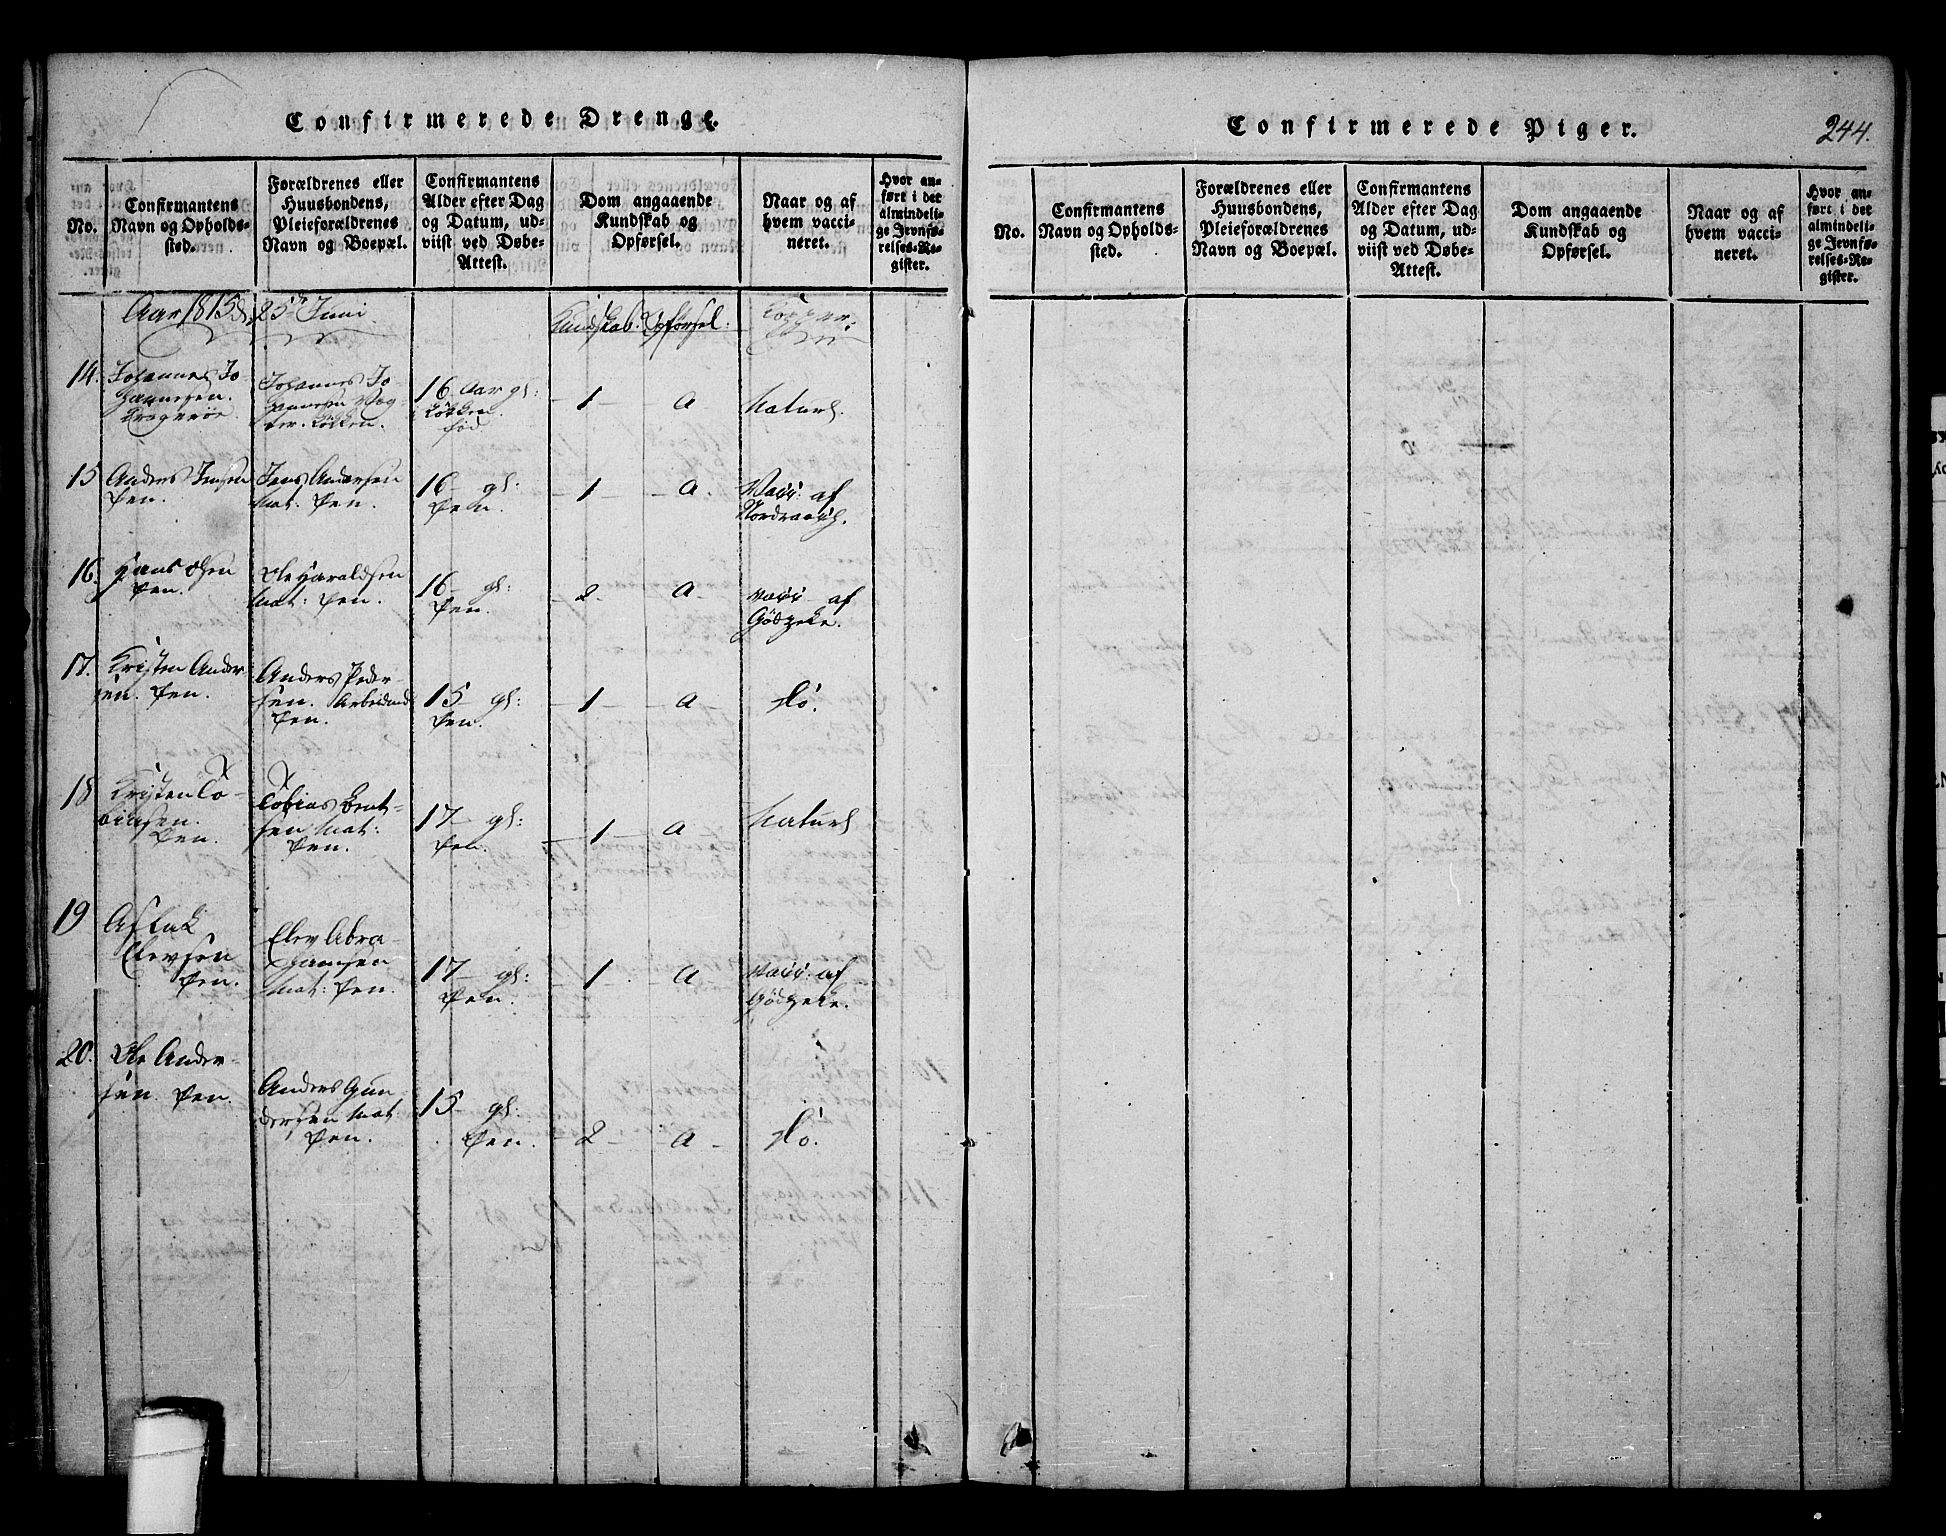 Confirmerede Drenge.
No.
Confirmantens
Navn og Opholds-
sted.
Forældrenes eller
Huusbondens,
Pleieforældrenes
Navn og Boepæl.
Confirmantens
Alder efter Dag
og Datum, ud-
viist ved Døbe-
Attest.
Dom angaaende
Kundskab og
Opførsel.
Naar og af
hvem vacci-
neret.
Hvor an-
ført i det
almindeli-
ge Jevnfø-
relses-Re-
gister.
Aar 1815 d. 25de Juni
Kundskab. Opførsel.
14. Johannes Jo-
hannesen.
Johannes Jo-
hannesen
16 Aar gl:
fød
1 a Naturl.
15 Anders Jensen
Øen.
Jens Andersen
Mat. Øen.
16 gl:
Øen.
1 a. Vacc: af
16. Hans Olsen
Øen.
Ole Haraldsen
Mat: Øen.
16 gl:
Øen.
2 a Vacc. af
Gödzeke.
17. Kristen Ander-
sen. Øen.
Anders Peder-
sen. Arbeidsmd
Øen.
15 gl:
Øen.
1 a do.
18 Kristen To-
biasen.
Øen.
Tobias Bent-
sen Mat:
Øen.
17 gl:
Øen.
1 a Naturl
19 Aslak
Elevsen
Øen.
Elev Abra-
hamsen
Mat: Øen.
17 gl:
Øen.
1 a Vacc: af
Gödzeke.
20. Ole Ander-
sen Øen.
Anders Gun-
dersen Mat
Øen.
15 gl:
Øen.
2 a do.
Confirmerede Piger.
244.
No.
Confirmantens
Navn og Opholds-
sted.
Forældrenes eller
Huusbondens,
Pleieforældrenes
Navn og Boepæl.
Confirmantens
Alder efter Dag
og Datum, ud-
viist ved Døbe-
Attest.
Dom angaaende
Kundskab og
Opførsel.
Naar og af
hvem vacci-
neret.
Hvor an-
ført i det
almindeli-
ge Jevnfø-
relses-Re-
gister.